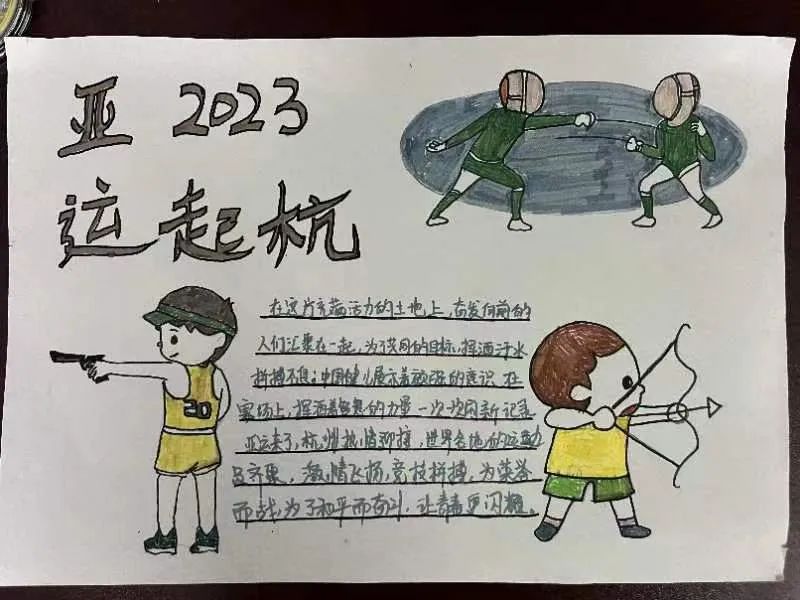 亚 2023
运起杭
在这片充满活力的土地上,奋发向前的
人们汇聚在一起,为共同的目标,挥洒汗水
拼搏不息;中国健儿展示着的意识,在
赛场上,挥洒着的力量一次次刷新记录
亚运来了,杭州热情迎接,世界各地的运动
员齐聚,激情飞扬,竞技拼搏,为荣誉
而战,为了和平而奋斗,让青春更闪耀。
20